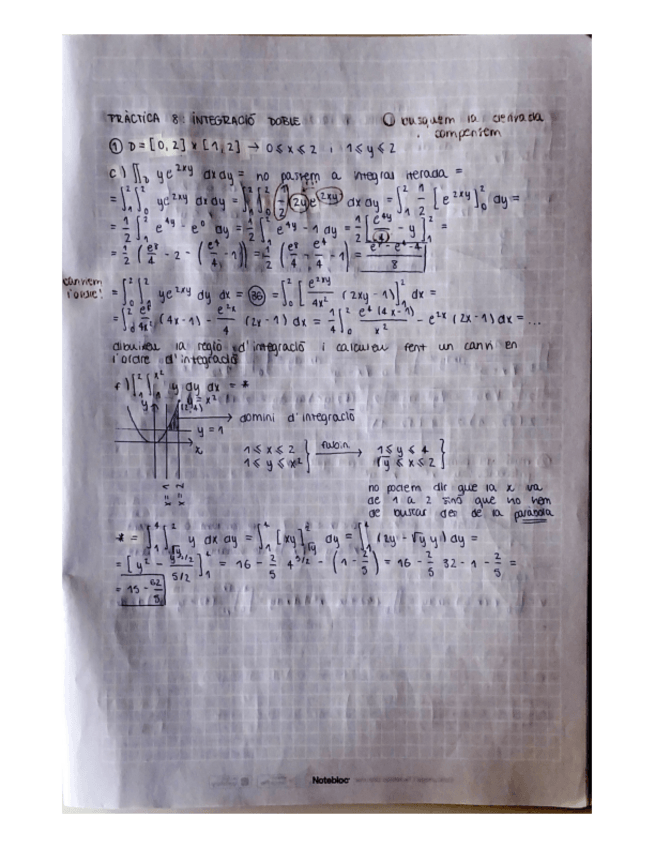 PRÀCTICA 8: INTEGRACIÓ DOBLE
busquem la derivada i compensem
① D = [0, 2] × [1, 2] → 0 ≤ x ≤ 2 i 1 ≤ y ≤ 2
c) ∬_D y e^{2xy} dx dy = no passem a integral iterada =
= ∫_1^2 ∫_0^2 y e^{2xy} dx dy = ∫_1^2 ∫_0^2 1/2 2y e^{2xy} dx dy = ∫_1^2 1/2 [e^{2xy}]_0^2 dy =
= 1/2 ∫_1^2 e^{4y} - e^0 dy = 1/2 ∫_1^2 e^{4y} - 1 dy = 1/2 [e^{4y}/4 - y]_1^2 =
= 1/2 (e^8/4 - 2 - (e^4/4 - 1)) = 1/2 (e^8/4 - e^4/4 - 1) = (e^8 - e^4 - 4)/8
canviem l'ordre!
= ∫_0^2 ∫_1^2 y e^{2xy} dy dx = (36) = ∫_0^2 [e^{2xy}/4x² (2xy - 1)]_1^2 dx =
(4x - 1) - e^{2x}/4 (2x - 1) dx = 1/4 ∫_0^2 e^4 (4x - 1)/x² - e^{2x} (2x - 1) dx = ...
dibuixeu la regió d'integració i calculeu fent un canvi en
l'ordre d'integració
f) ∫_1^2 ∫_1^{x²} y dy dx = *
y
y = x²
(2,4)
domini d'integració
y = 1
x
x = 1
x = 2
1 ≤ x ≤ 2
1 ≤ y ≤ x²
fubini
1 ≤ y ≤ 4
√y ≤ x ≤ 2
no podem dir que la x va
de 1 a 2 sinó que ho hem
de buscar des de la paràbola
* = ∫_1^4 ∫_{√y}^2 y dx dy = ∫_1^4 [xy]_{√y}^2 dy = ∫_1^4 (2y - √y y) dy =
= [y² - y^{5/2}/5/2]_1^4 = 16 - 2/5 4^{5/2} - (1 - 2/5) = 16 - 2/5 32 - 1 - 2/5 =
= 15 - 62/5
Notebloc